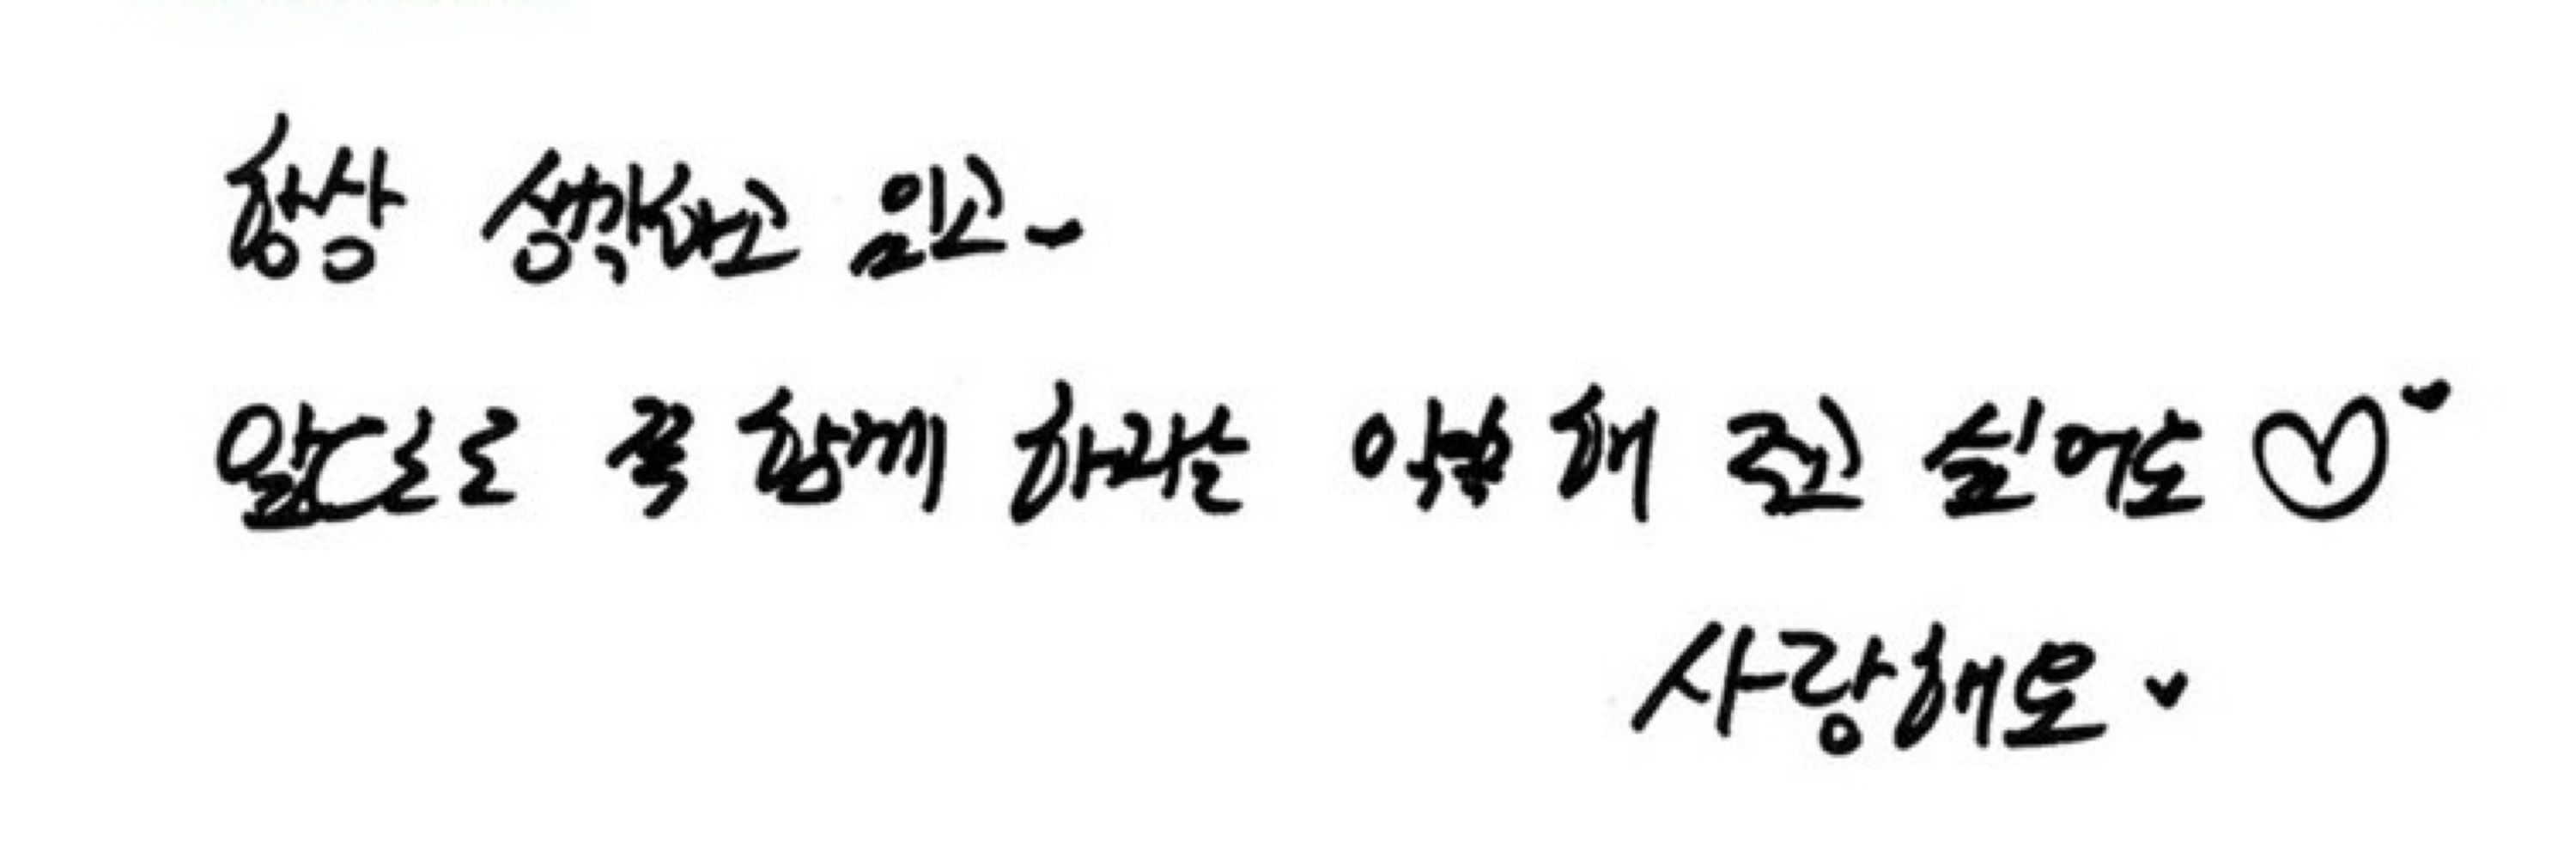 항상 생각하고 있고~
앞으로 꼭 함께 하자는 약속 해 주고 싶어요♡
사랑해요